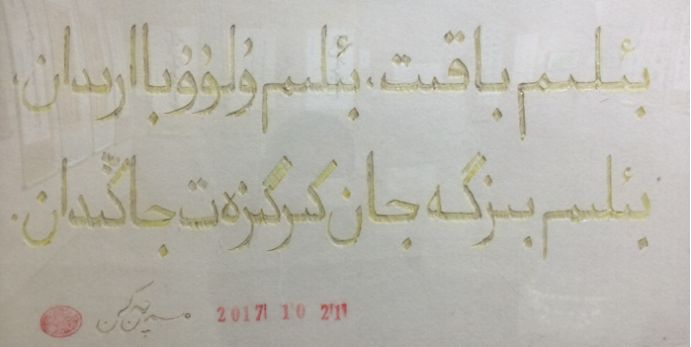 بئلىم باقىت، بئلىم ۇلۋۋبااردان،
بئلىم بىزگە جان كىرگىزەت جاڭىدان.
2017 10 21